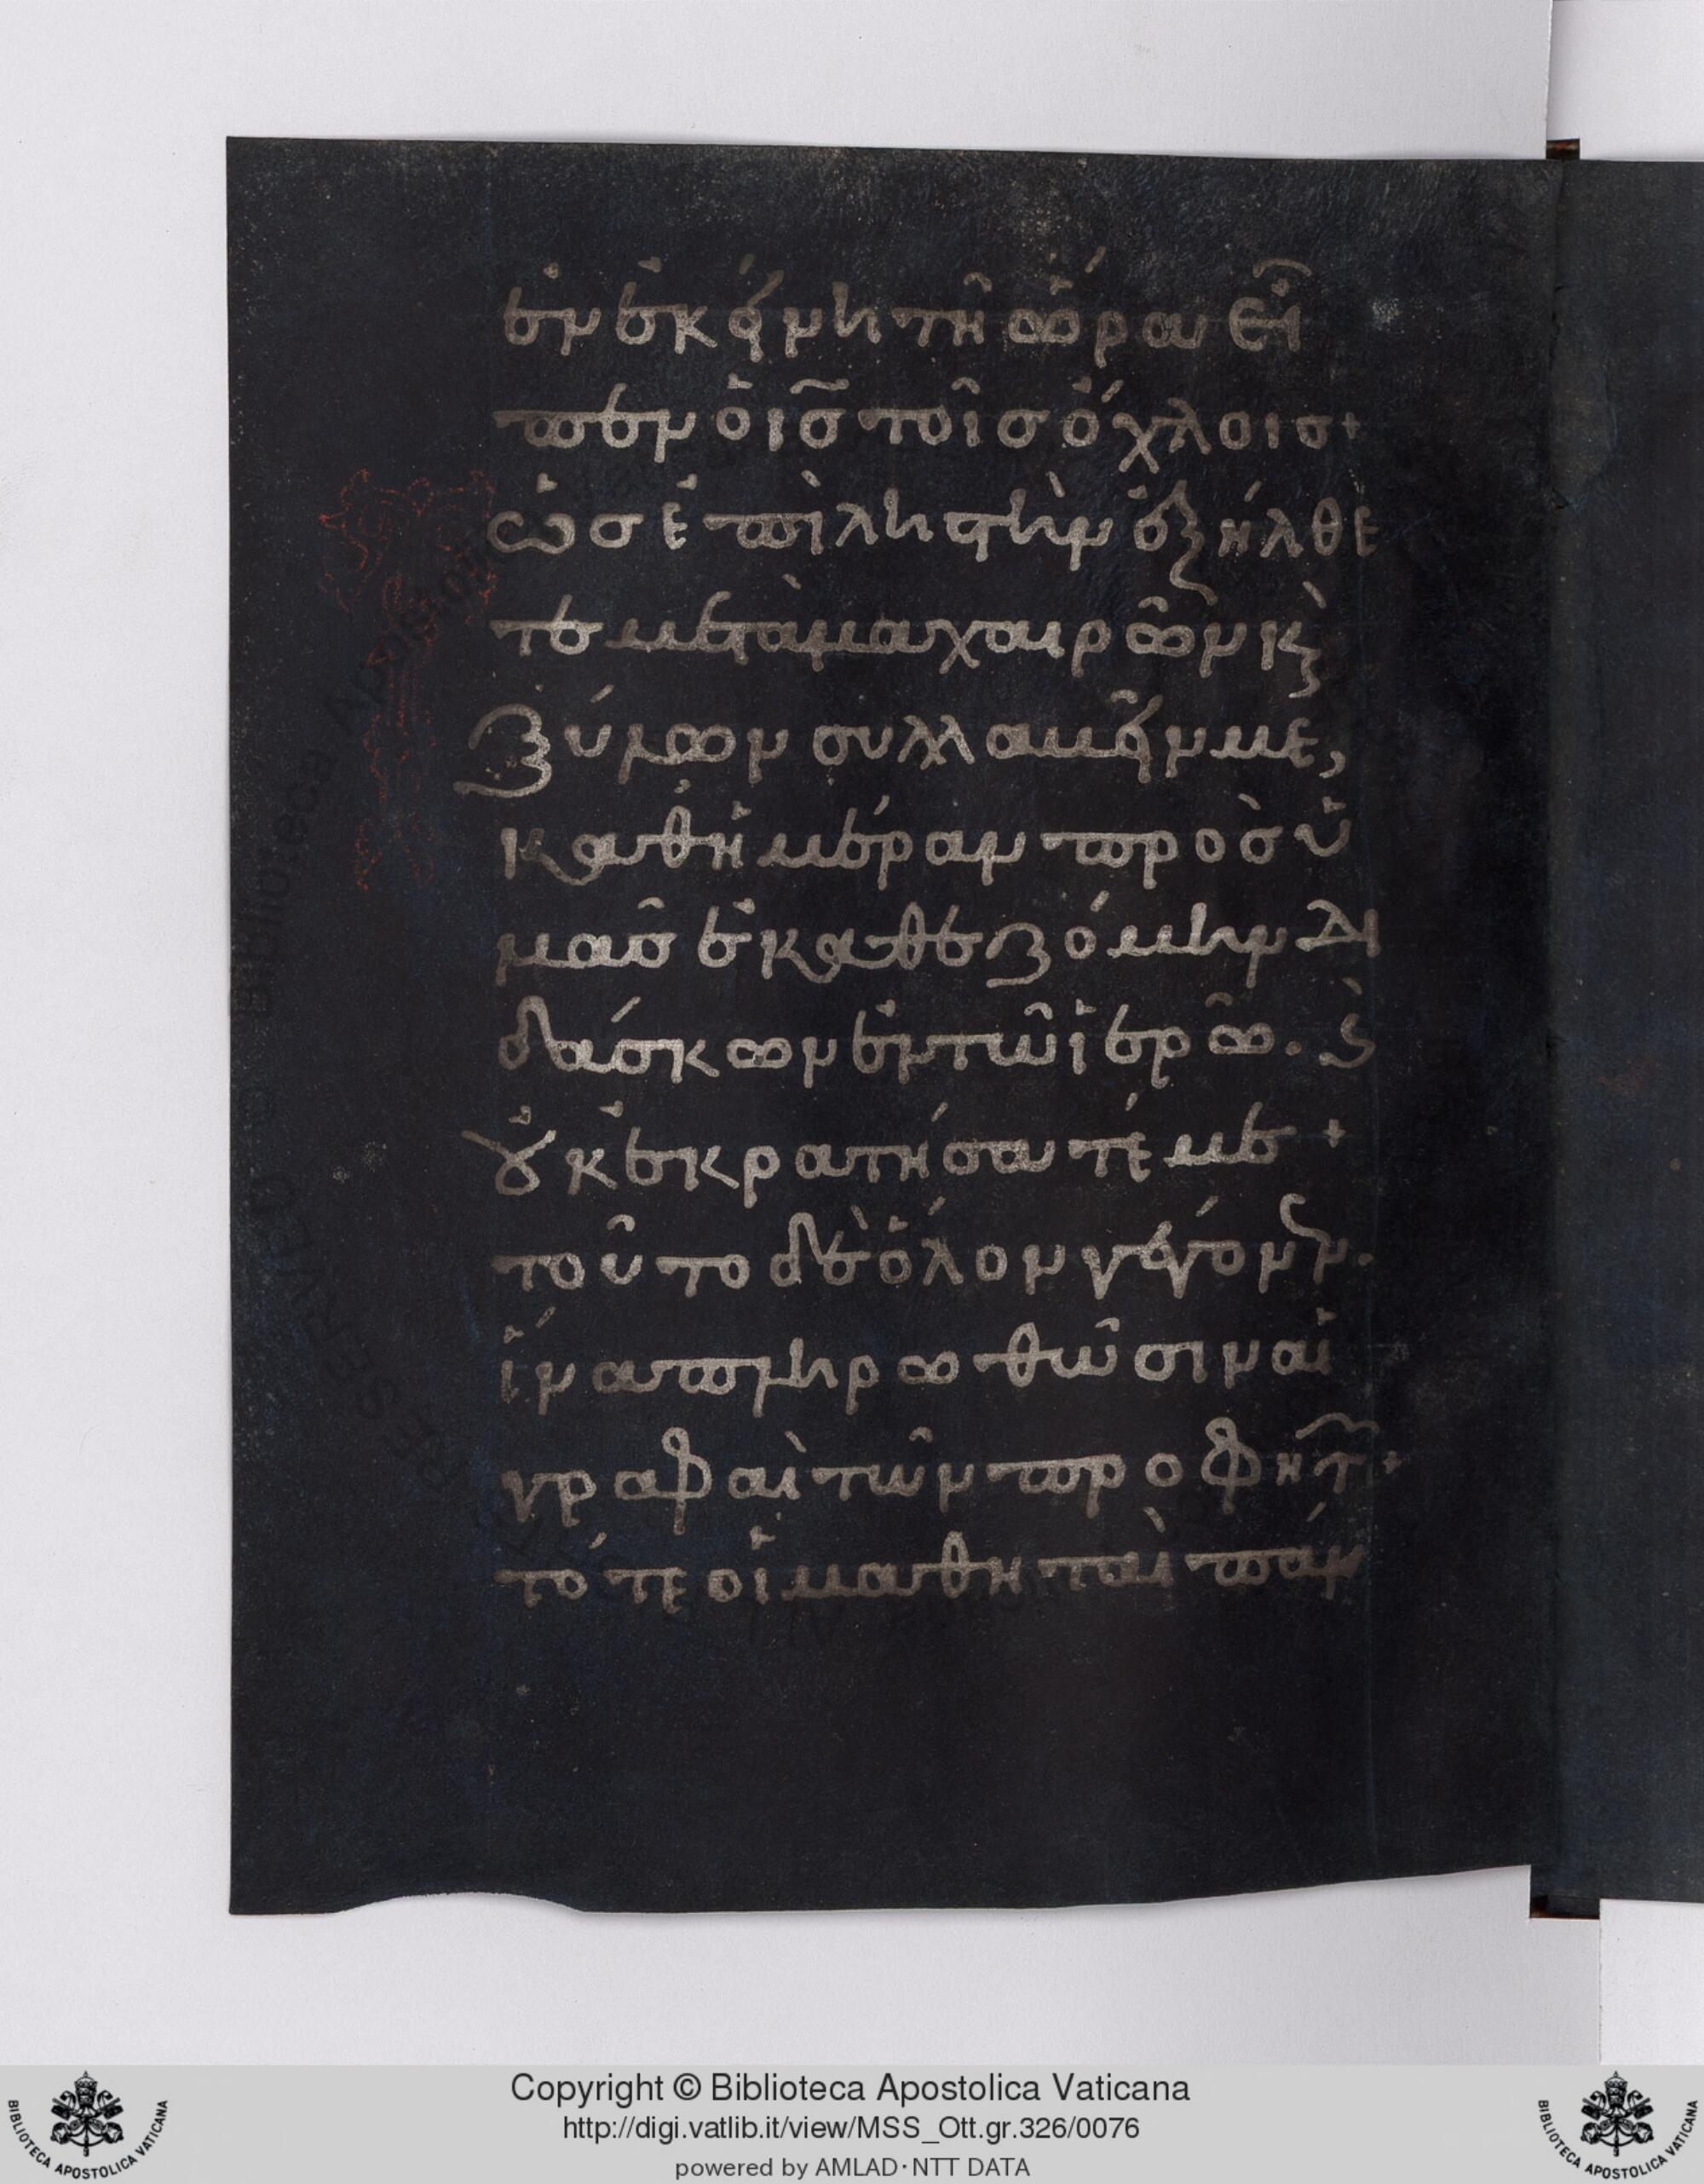 ἐν ἐκείνη τῆ ὥρα εἶ
πεν ὁ ἰς̅ τοῖς ὄχλοις+
ὡς ἐπὶ ληστὴν ἐξήλθε
τε μετὰ μαχαιρῶν κ̀
ξύλων συλλαβεῖν με,
καθ' ἡμέραν πρὸς ὑ
μᾶς ἐκαθεζόμην δι
δάσκων ἐν τῶ ἱερῶ. κ̀
οὐκ ἐκρατήσατέ με+
τοῦτο δὲ ὅλον γέγονεν.
ἵνα πληρωθῶσιν αἱ
γραφαὶ τῶν προφητ̑+
τότε οἱ μαθηταὶ πάν
Copyright © Biblioteca Apostolica Vaticana
http://digi.vatlib.it/view/MSS_Ott.gr.326/0076
powered by AMLAD·NTT DATA
BIBLIOTECA APOSTOLICA VATICANA
BIBLIOTECA APOSTOLICA VATICANA